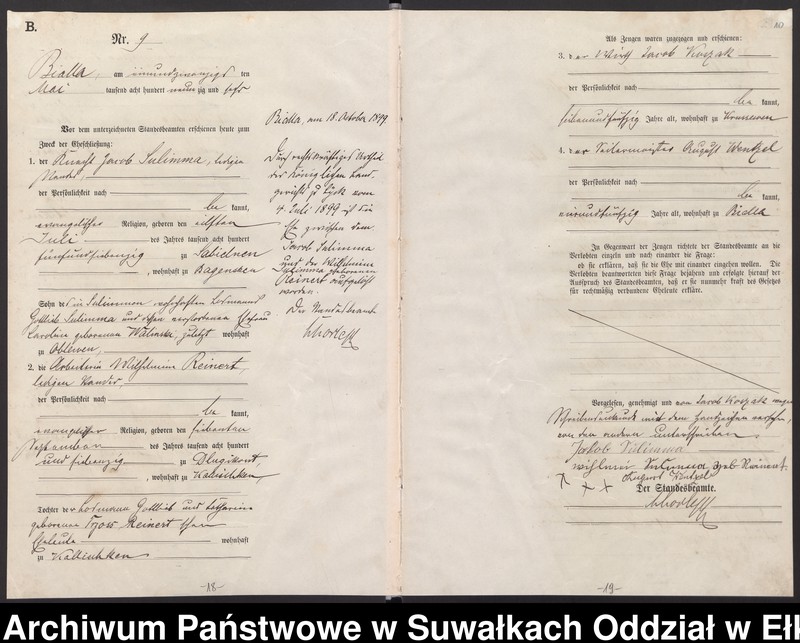 B.
Nr. 9
Bialla, am einundzwanzigsten
Mai tausend acht hundert neunzig und sechs
Vor dem unterzeichneten Standesbeamten erschienen heute zum
Zweck der Eheschließung:
1. der Knecht Jacob Sulimma, ledigen
Standes,
der Persönlichkeit nach
be kannt,
evangelischer Religion, geboren den elften
Juli des Jahres tausend acht hundert
fünfundsiebenzig zu
, wohnhaft zu
Sohn des in Sulimmen
Gottlieb Sulimma und dessen verstorbenen Ehefrau
Caroline geborenen zuletzt wohnhaft
zu Oblewen,
2. die Arbeiterin Wilhelmine Reinert,
ledigen Standes,
der Persönlichkeit nach
be kannt,
evangelischer Religion, geboren den siebenten
September des Jahres tausend acht hundert
und siebenzig zu
, wohnhaft zu Kallischken
Tochter der Losmann Gottlieb und Catharine
geborenen Reinert'schen
Eheleute wohnhaft
zu Kallischken
Bialla, am 18. October 1899
Durch rechtskräftiges Urtheil
der Königlichen Land-
gericht zu Lyck vom
4. Juli 1899 ist die
Ehe zwischen dem
Jacob Sulimma
und der Wilhelmine
Sulimma geborenen
Reinert aufgelöst
worden.
Der Standesbeamte
-18-
Als Zeugen waren zugezogen und erschienen:
3. der Wirth Jacob Koszak
der Persönlichkeit nach
be kannt,
siebenundfünfzig Jahre alt, wohnhaft zu
4. der Seilermeister August Wentzel
der Persönlichkeit nach
be kannt,
Jahre alt, wohnhaft zu Bialla
In Gegenwart der Zeugen richtete der Standesbeamte an die
Verlobten einzeln und nach einander die Frage:
ob sie erklären, daß sie die Ehe mit einander eingehen wollen. Die
Verlobten beantworteten diese Frage bejahend und erfolgte hierauf der
Ausspruch des Standesbeamten, daß er sie nunmehr kraft des Gesetzes
für rechtmäßig verbundene Eheleute erkläre.
Vorgelesen, genehmigt und von Jacob Koszak wegen
Schreibensunkunde mit dem Handzeichen versehen,
von den andern unterschrieben.
Jakob Sulimma
Sulimma geb Reinert.
August Wentzel
x x x
Der Standesbeamte.
-19-
Archiwum Państwowe w Suwałkach Oddział w Eł